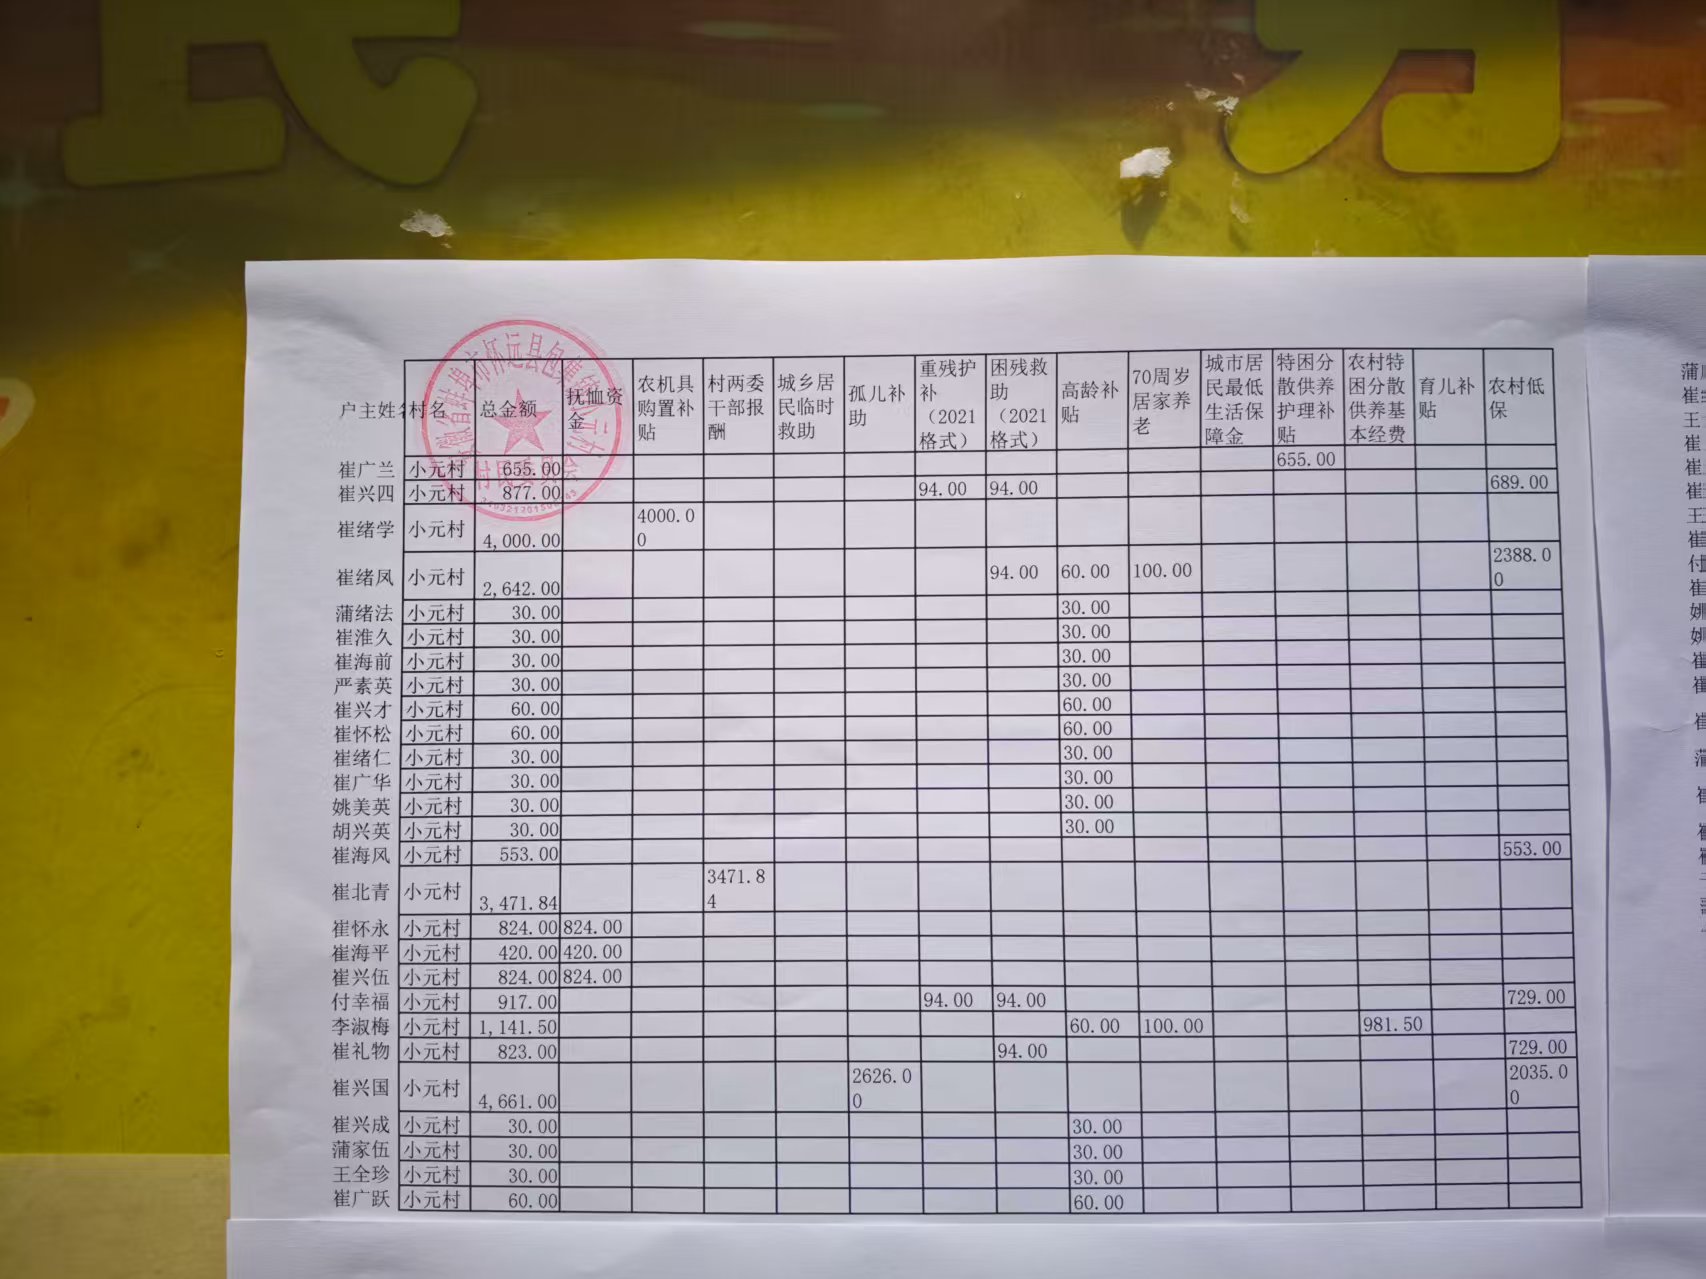 户主姓名 村名 总金额 抚恤资金 农机具购置补贴 村两委干部报酬 城乡居民临时救助 孤儿补助 重残护补（2021格式） 困残救助（2021格式） 高龄补贴 70周岁居家养老 城市居民最低生活保障金 特困分散供养护理补贴 农村特困分散供养基本经费 育儿补贴 农村低保
崔广兰 小元村 655.00 655.00
崔兴四 小元村 877.00 94.00 94.00 689.00
崔绪学 小元村 4,000.00 4000.00
崔绪凤 小元村 2,642.00 94.00 60.00 100.00 2388.00
蒲绪法 小元村 30.00 30.00
崔淮久 小元村 30.00 30.00
崔海前 小元村 30.00 30.00
严素英 小元村 30.00 30.00
崔兴才 小元村 60.00 60.00
崔怀松 小元村 60.00 60.00
崔绪仁 小元村 30.00 30.00
崔广华 小元村 30.00 30.00
姚美英 小元村 30.00 30.00
胡兴英 小元村 30.00 30.00
崔海风 小元村 553.00 553.00
崔北青 小元村 3,471.84 3471.84
崔怀永 小元村 824.00 824.00
崔海平 小元村 420.00 420.00
崔兴伍 小元村 824.00 824.00
付幸福 小元村 917.00 94.00 94.00 729.00
李淑梅 小元村 1,141.50 60.00 100.00 981.50
崔礼物 小元村 823.00 94.00 729.00
崔兴国 小元村 4,661.00 2626.00 2035.00
崔兴成 小元村 30.00 30.00
蒲家伍 小元村 30.00 30.00
王全珍 小元村 30.00 30.00
崔广跃 小元村 60.00 60.00